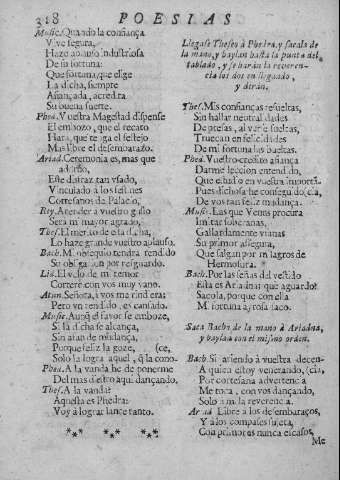 318 POESIAS
Music. Quando la confiança
Vive segura,
Haze aplauso industriosa
De su fortuna:
Que fortuna, que elige
La dicha, siempre
Afiançada, acredita
Su buena suerte.
Phed. Vuestra Magestad dispense
El emboço, que el recato
Hara, que tenga el festejo
Mas libre el desembarazo.
Ariad. Ceremonia es, mas que
adorno,
Este disfraz tan usado,
Vinculado à los festines
Cortesanos de Palacio,
Rey. Atender à vuestro gusto
Será mi mayor agrado,
Thes. El merito de esta dicha,
Lo haze grande vuestro aplauso.
Bach. Mi obsequio tendrà rendido
Su obligacion por resguardo.
Lid. El yelo de mi temor
Correrè con vos muy vano.
Atun. Señora, à vos me rindierà:
Pero un rendido, es cansado.
Music. Aunq̃ el favor se emboze,
Si la dicha se alcança,
Sin afan de mudança,
Porque feliz la goze, (ce,
Solo la logra aquel, q̃ la cono-
Phed. A la vanda he de ponerme
Del mas diestro aqui dançando.
Thes. A la vanda?
Aquesta es Phedra:
Voy à lograr lance tanto.
*** *** ***
Llegase Theseo à Phedra, y sacala de
la mano, y baylan hasta la punta del
tablado, y se haràn la reveren-
cia los dos en llegando,
y diràn.
Thes. Mis confianças resueltas,
Sin hallar neutralidades
De presas, al verse sueltas,
Truecan en felicidades
De mi fortuna las bueltas.
Phed. Vuestro credito afiança
Darme leccion entendido,
Que estando en vuestra mudãça
Pues dichosa he conseguido, cia,
De vos tan feliz mudança.
Music. Las que Venus procura
Imitar soberanas,
Gallardamente vfanas
Su primor assegura,
Que salgan por milagros de
Hermosura.
Bach. Por las señas del vestido
Esta es Ariadna: què aguardo?
Sacola, porque con ella
Mi fortuna ayrosa saco.
Saca Bacho de la mano à Ariadna,
y baylan con el mismo orden.
Bach. Si asiendo à vuestra decen-
A quien estoy venerando, (cia,
Por cortesana advertencia
Me toca, con vos dançando,
Solo à mi la reverencia.
Ariad. Libre à los desembaraços,
Y à los compases sujeta,
Con primores nunca escasos,
Me